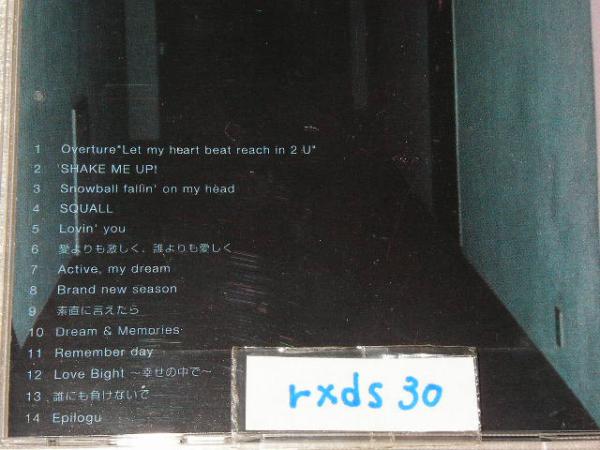 1 Overture"Let my heart beat reach in 2 U"
2 SHAKE ME UP!
3 Snowball fallin' on my head
4 SQUALL
5 Lovin' you
6 愛よりも激しく、誰よりも愛しく
7 Active, my dream
8 Brand new season
9 素直に言えたら
10 Dream & Memories
11 Remember day
12 Love Bight ～幸せの中で～
13 誰にも負けないで
14 Epilogu
rxds 30